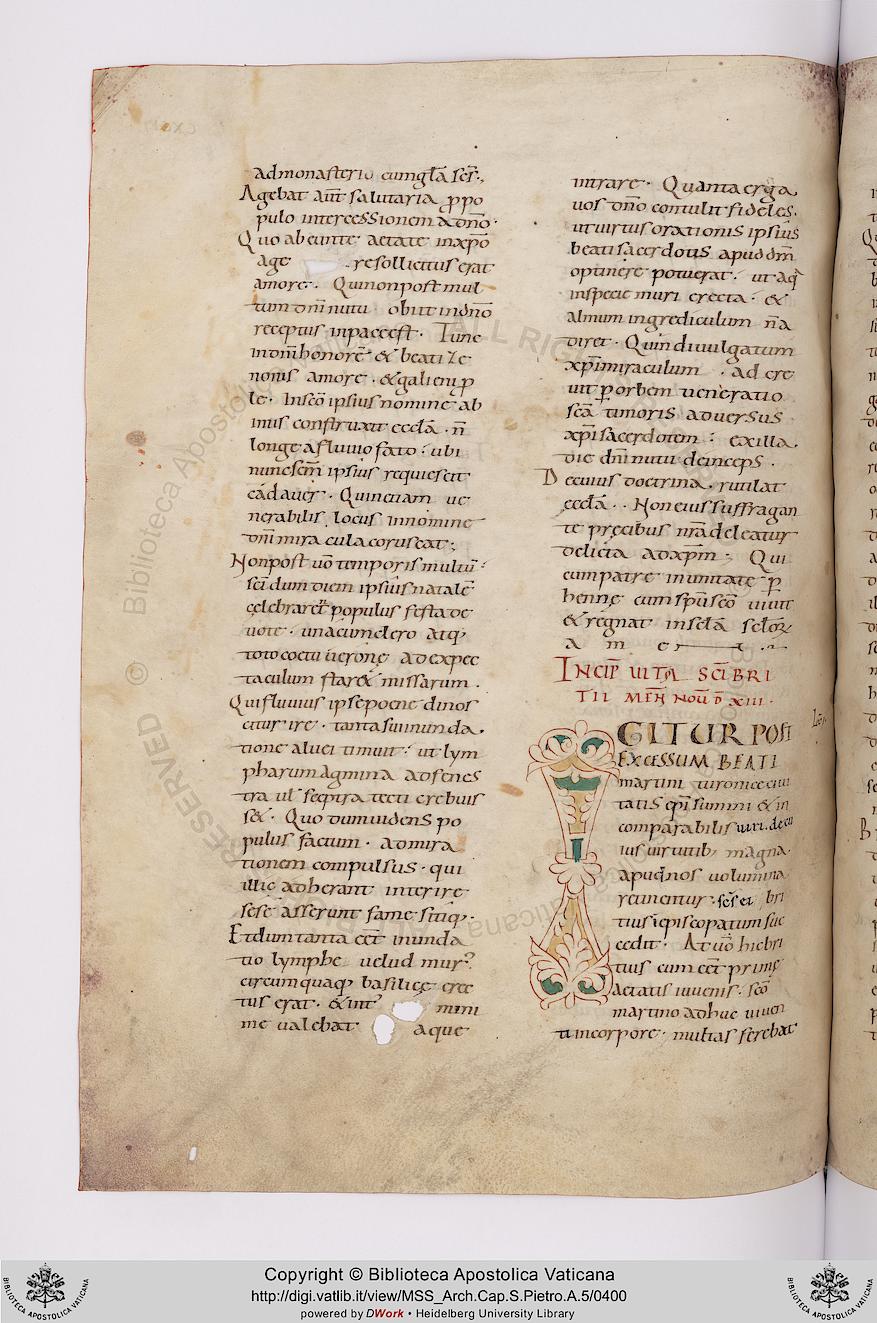 admonasterio cumgła scr̄.,
Agebat aut̄ salutaria p̱po
pulo intercessionem adn̄o·
Quo abeunte aetate inxp̄o
age resollicitus erat
amore· Quinonpost mul
tum dn̄i nutu obiit indn̄o
receptus inpaceest· Tunc
indn̄i honorē & beati Ze
nonis amore· &galieni p̱
le· Inscō ipsius nomine ab
imus construxit eccl̄a· n̄
longe a fluuio fato· ubi
nuncsem̄ ipsius requiescit
cadauer· Quinetiam ue
nerabilis locus innomine
dn̄i miracula coruscat·,
Nonpost uō temporis multū·
sci dum diem ipsius natalē
celebraret populus festa de
uote· unacumclero atq;
toto coetu ueronę adexpec
taculum staret missarum.
Quifluuius ipse pocne dinos
citur ire· tanta suinunda.
tione aluei timuit· ut lym
pharum agmina adsenes
tra ul̄ sep̱tra tecti crebuis
set· Quo dumuidens po
pulus factum· admira
tionem compulsus· qui
illic adherant interire
sese asserunt fame sitiq;·
Et dum tanta eet̄ inunda
tio lymphe uelud mur?
circumquaq; basilice erec
tus erat· & int̄ mini
me ualebat aque
intrare· Quanta erga
uos dn̄o contulit fideles.
ut uirtus orationis ipsius
beati sacerdotis apud dm̄
optinere potuerat· ut aq̄
inspecie muri erecta· &
almum ingrediculum n̄a
diret· Quin diuulgatum
xp̄i miraculum· ad cre
uit p̱ orbem ueneratio
scā timoris aduersus
xp̄i sacerdotem· exilla.
die dn̄i nutu deinceps.
De cuius doctrina· rutilat
eccl̄a·. Non eius suffragan
te precibus nr̄a deleatur
delicta ad xp̄m· Qui
cum patre inunitate p̱
henne cum sp̄u scō uiuit
& regnat inscl̄a scl̄oꝝ
a m e
INCIP̄ UITA SCĪ BRI
TII MEN̄ NOŪ D̄ XIII·
IGITUR POST
EXCESSUM BEATI
martini turonice ciui
tatis ep̄i summi & in
comparabilis uiri.decu
ius uirtutib; magna·
apud nos uolumina
retinentur· sc̄s et bri
tius iepiscopatum suc
cedit· At uō hic bri
tius cum eet̄ prime
Aetatis iuuenis· scō
martino adhuc uiuen
ti incorpore· multas serebat